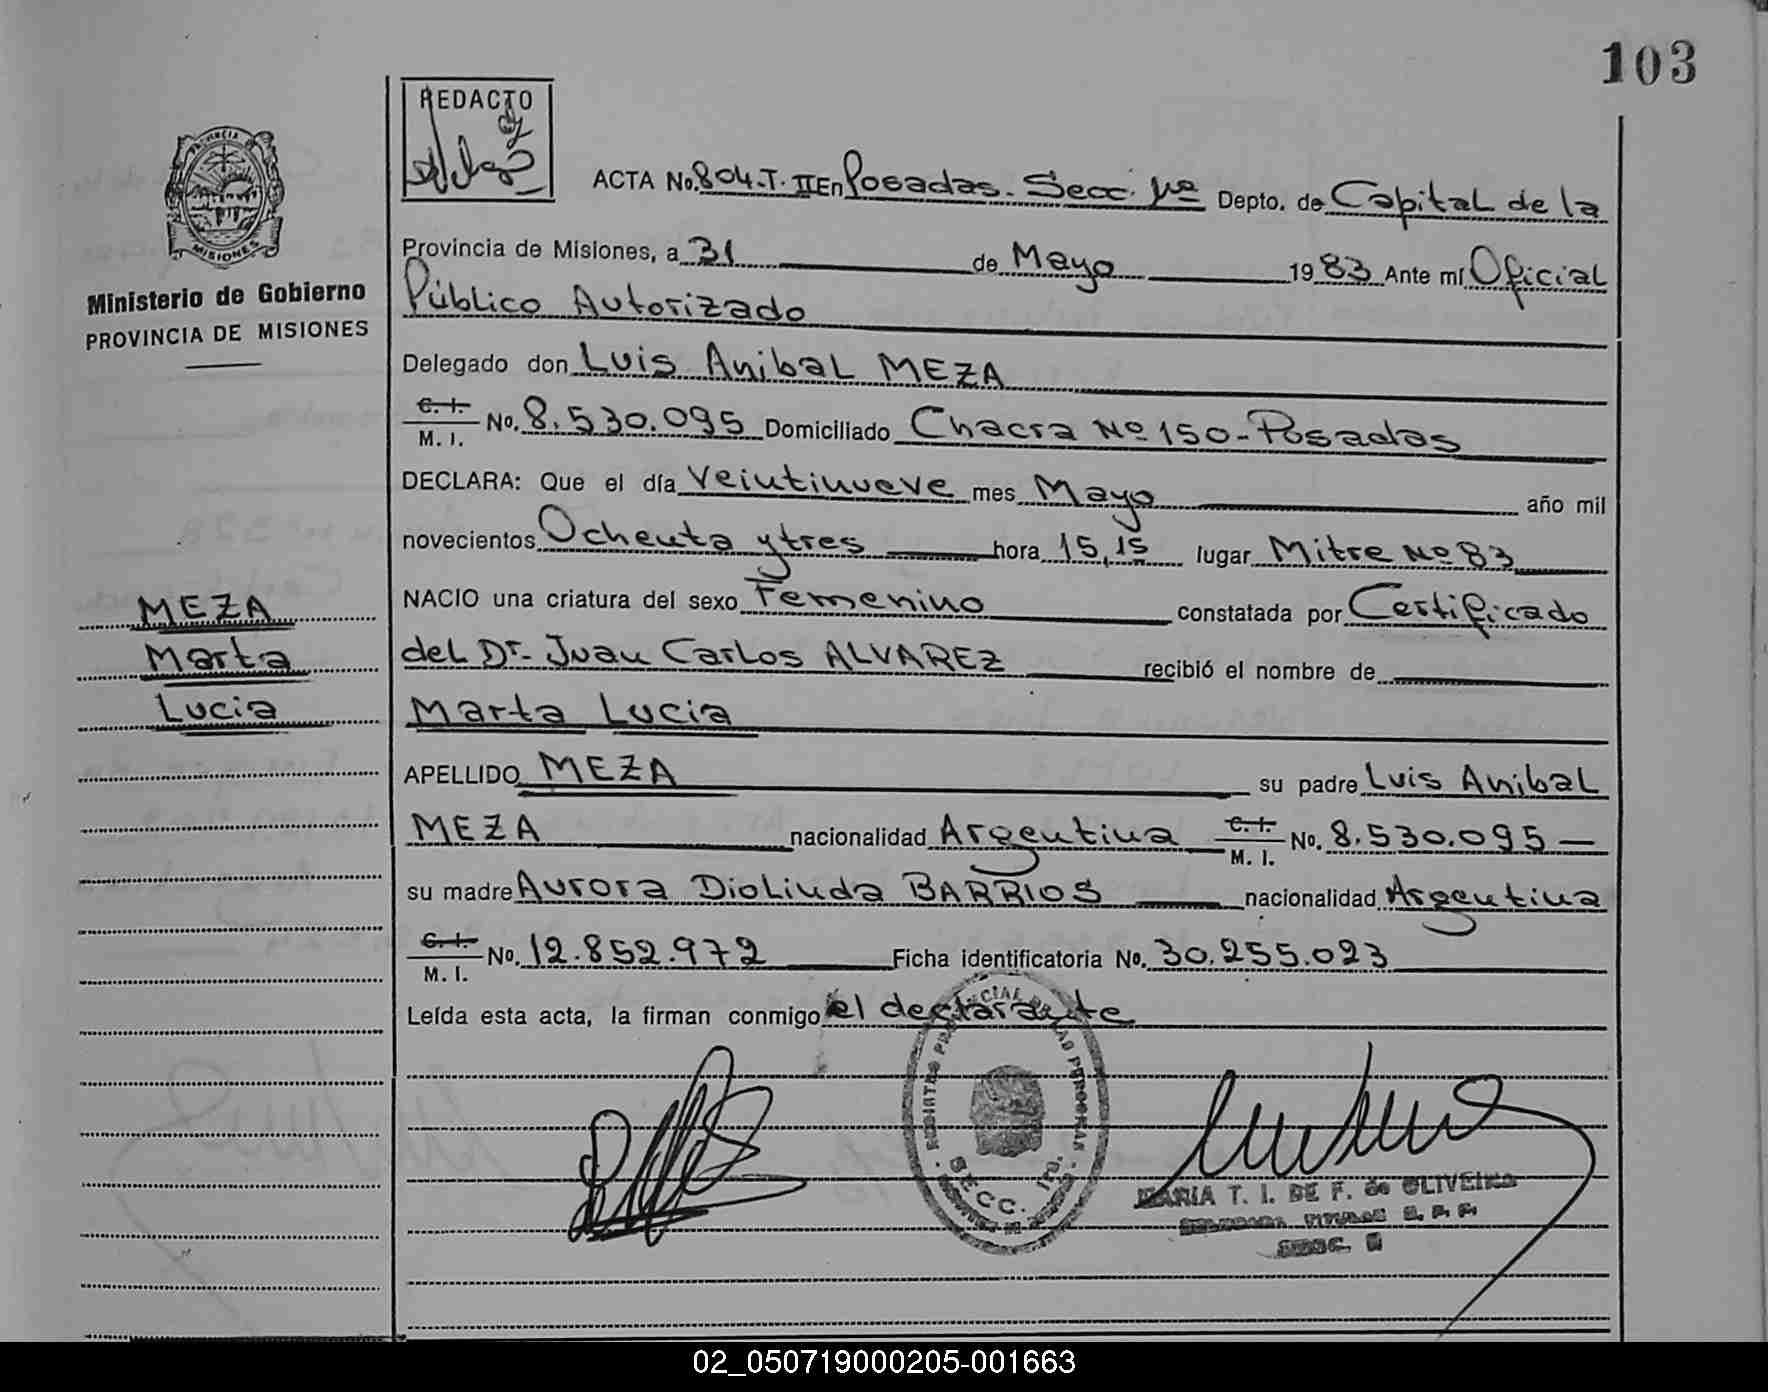 103
REDACTO
PROVINCIA
MISIONES
Ministerio de Gobierno
PROVINCIA DE MISIONES
ACTA No. 804-T. II En Posadas. Secc. 1ra Depto. de Capital de la
Provincia de Misiones, a 31 de Mayo 1983 Ante mí Oficial
Público Autorizado
Delegado don Luis Anibal MEZA
C. I. M. I. No. 8.530.095 Domiciliado Chacra No 150-Posadas
DECLARA: Que el día Veintinueve mes Mayo año mil
novecientos Ochenta y tres hora 15,15 lugar Mitre No 83
NACIO una criatura del sexo Femenino constatada por Certificado
del Dr. Juan Carlos ALVAREZ recibió el nombre de
Marta Lucia
APELLIDO MEZA su padre Luis Anibal
MEZA nacionalidad Argentina C. I. M. I. No. 8.530.095-
su madre Aurora Diolinda BARRIOS nacionalidad Argentina
C. I. M. I. No. 12.852.972 Ficha identificatoria No. 30.255.023
Leída esta acta, la firman conmigo el declarante
MEZA
Marta
Lucia
SECC. 1ra.
MARIA T. I. DE F. de OLIVEIRA
02_050719000205-001663